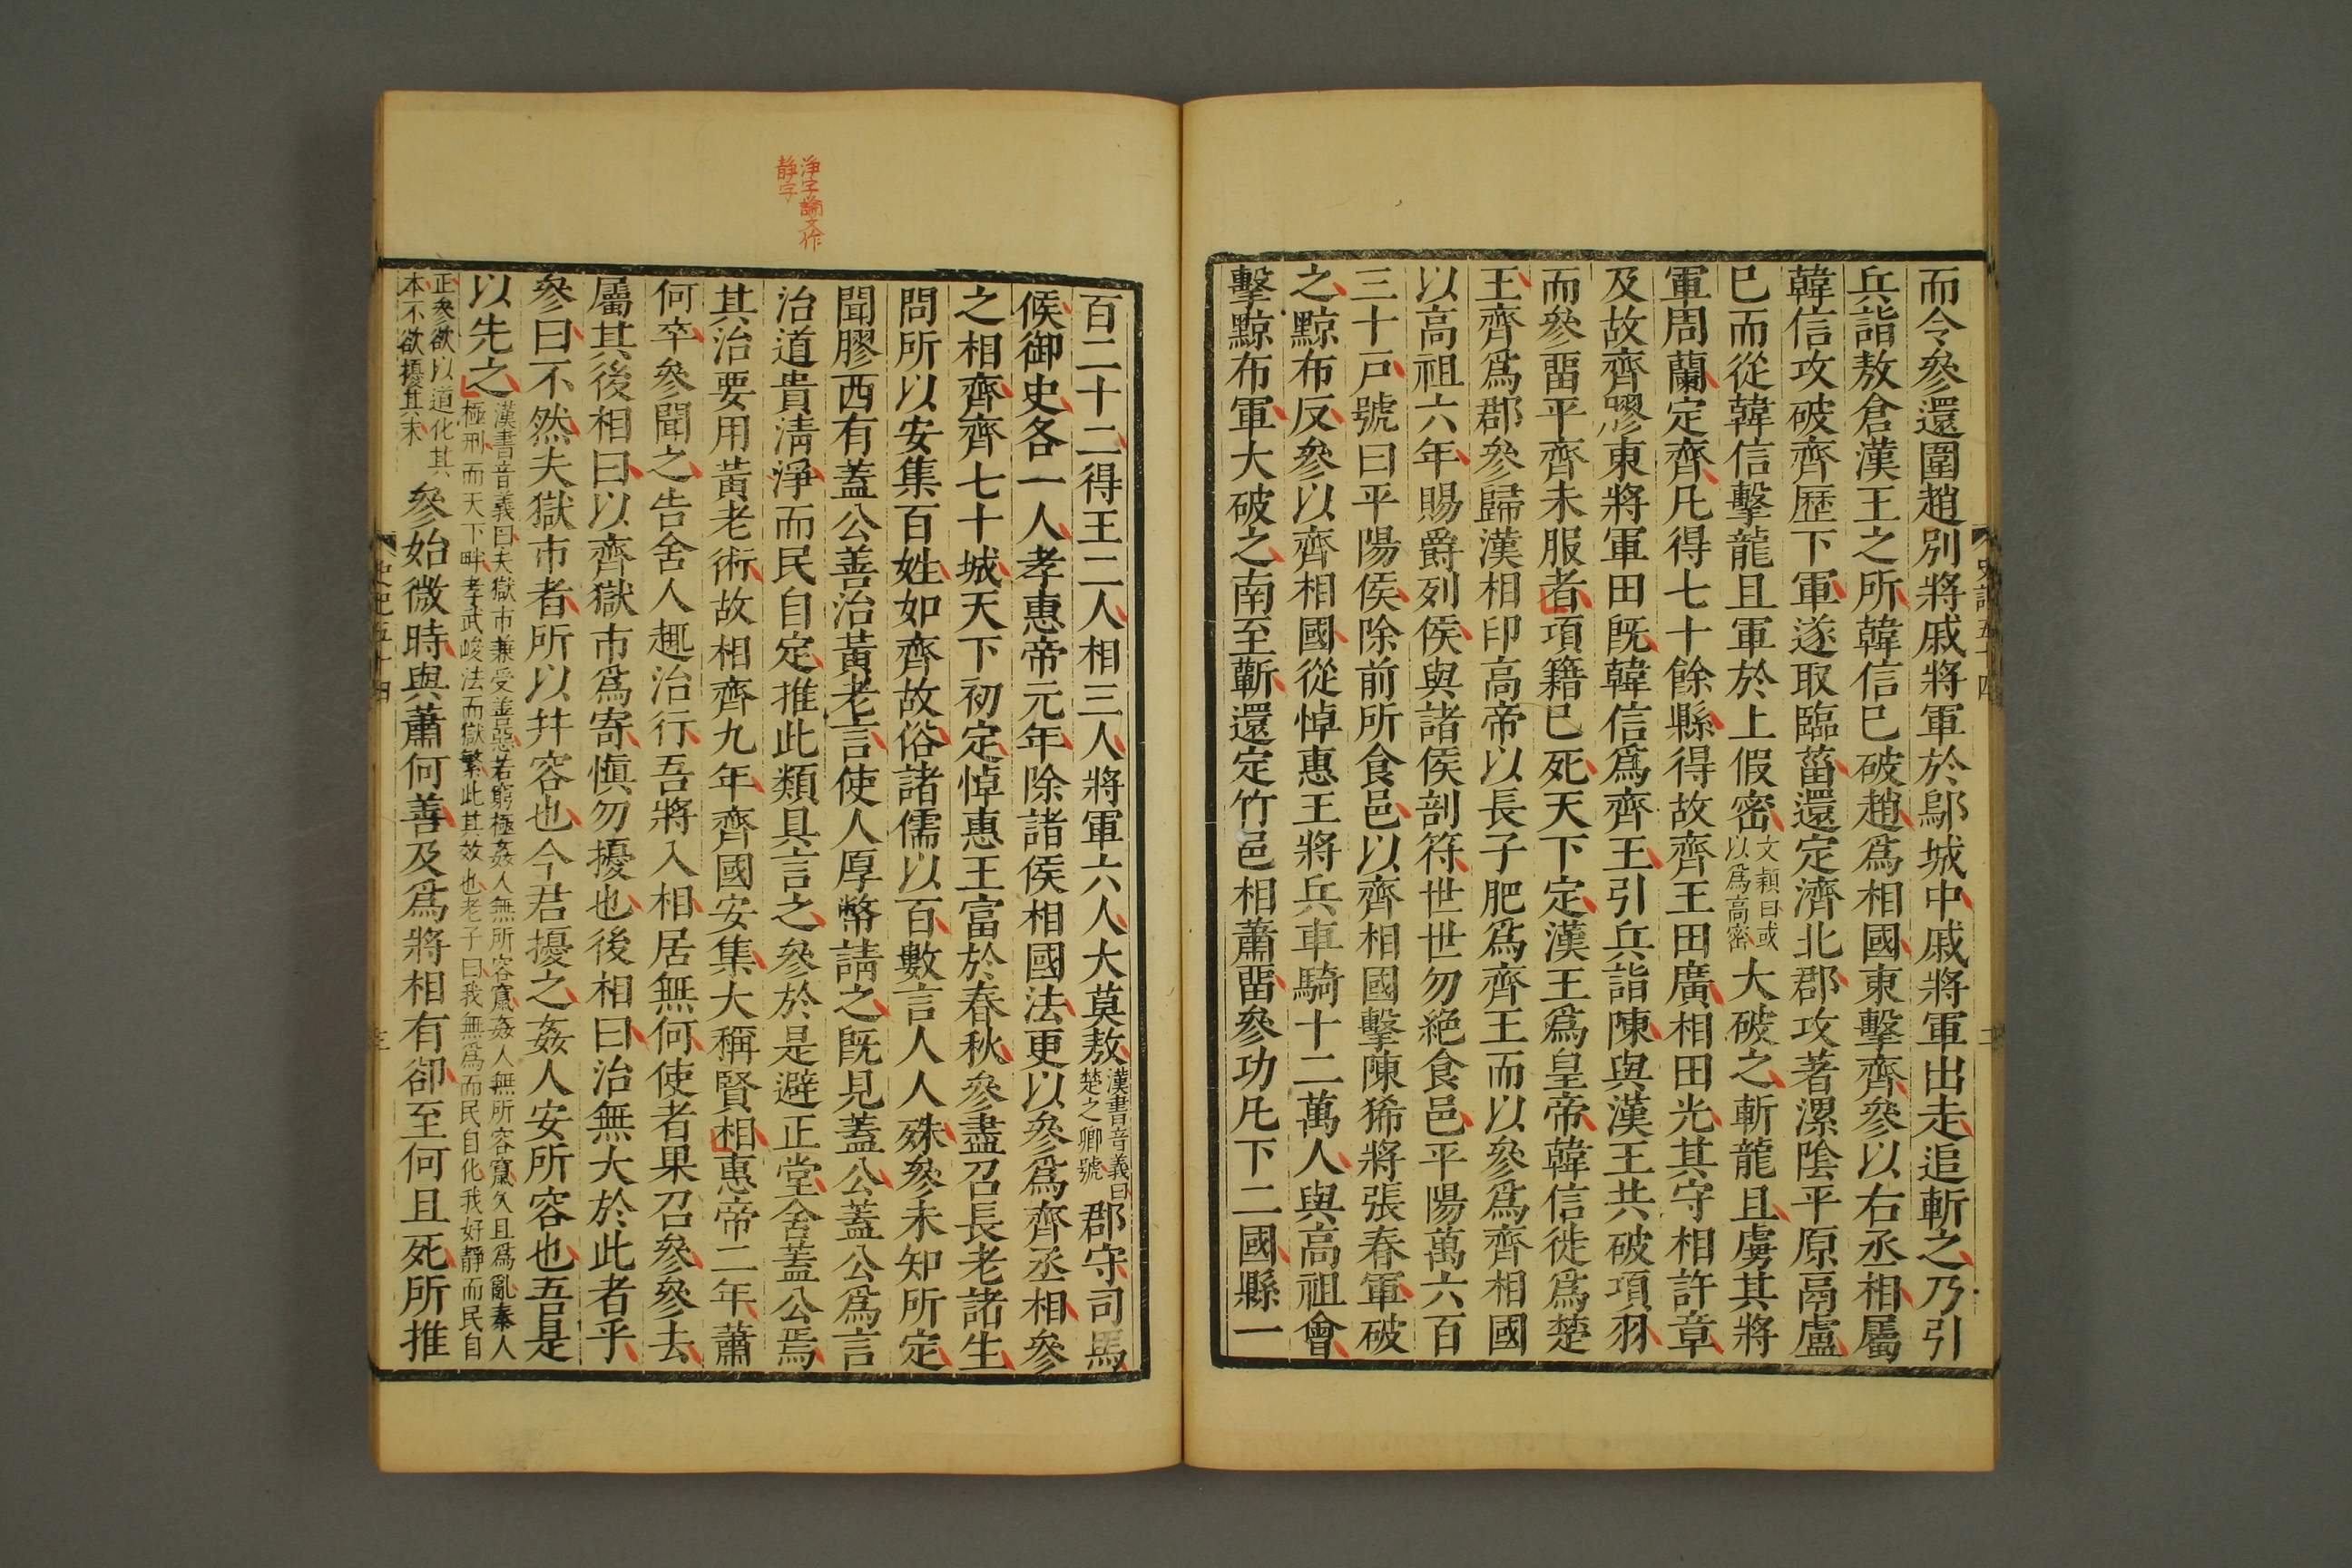 而令參還圍趙別將戚將軍於鄔城中戚將軍出走追斬之乃引
兵詣敖倉漢王之所韓信已破趙爲相國東擊齊參以右丞相屬
韓信攻破齊歷下軍遂取臨菑還定濟北郡攻著漯陰平原鬲盧
已而從韓信擊龍且軍於上假密文穎曰或以爲高密大破之斬龍且虜其將
軍周蘭定齊凡得七十餘縣得故齊王田廣相田光其守相許章
及故齊膠東將軍田旣韓信爲齊王引兵詣陳與漢王共破項羽
而參畱平齊未服者項籍已死天下定漢王爲皇帝韓信徙爲楚
王齊爲郡參歸漢相印高帝以長子肥爲齊王而以參爲齊相國
以高祖六年賜爵列侯與諸侯剖符世世勿絶食邑平陽萬六百
三十戸號曰平陽侯除前所食邑以齊相國擊陳豨將張春軍破
之黥布反參以齊相國從悼惠王將兵車騎十二萬人與高祖會
擊黥布軍大破之南至蘄還定竹邑相蕭畱參功凡下二國縣一
史記五十四
淨字論文作
靜字
百二十二得王二人相三人將軍六人大莫敖漢書音義曰楚之卿號郡守司馬
候御史各一人孝惠帝元年除諸侯相國法更以參爲齊丞相參
之相齊齊七十城天下初定悼惠王富於春秋參盡召長老諸生
問所以安集百姓如齊故俗諸儒以百數言人人殊參未知所定
聞膠西有蓋公善治黃老言使人厚幣請之旣見蓋公蓋公爲言
治道貴淸淨而民自定推此類具言之參於是避正堂舍蓋公焉
其治要用黃老術故相齊九年齊國安集大稱賢相惠帝二年蕭
何卒參聞之告舍人趣治行吾將入相居無何使者果召參參去
屬其後相曰以齊獄市爲寄愼勿擾也後相曰治無大於此者乎
參曰不然夫獄市者所以并容也今君擾之姦人安所容也吾是
以先之漢書音義曰夫獄市兼受善惡若窮極姦人無所容竄姦人無所容竄久且爲亂秦人極刑而天下畔孝武峻法而獄繁此其效也老子曰我無爲而民自化我好靜而民自
正參欲以道化其本不欲擾其末參始微時與蕭何善及爲將相有卻至何且死所推
史記五十四
三